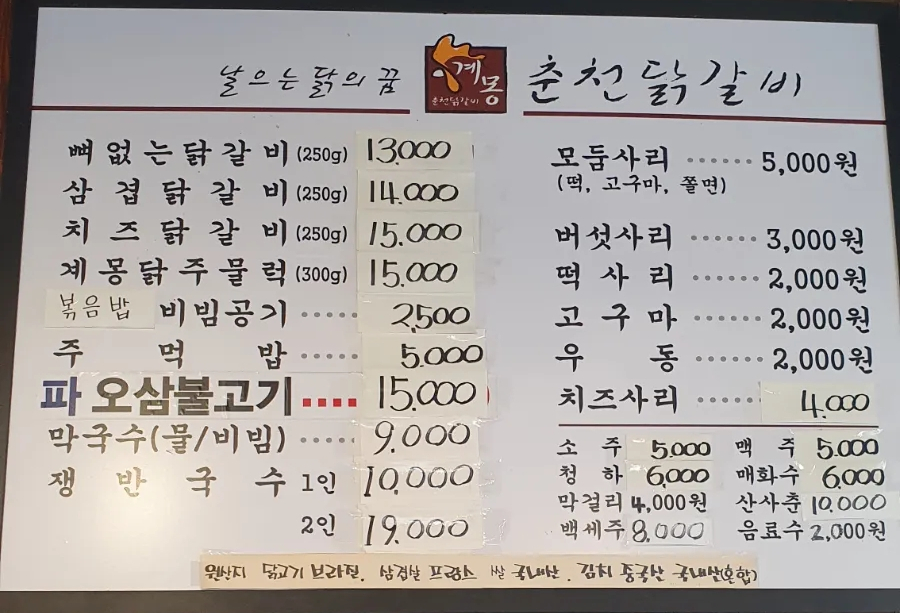 날으는 닭의 꿈
계몽
춘천닭갈비
춘천닭갈비
뼈없는닭갈비(250g) 13,000
삼겹닭갈비(250g) 14,000
치즈닭갈비(250g) 15,000
계몽닭주물럭(300g) 15,000
볶음밥 비빔공기 ····· 2,500
주먹밥 ····· 5,000
파 오삼불고기 .... 15,000
막국수(물/비빔) ····· 9,000
쟁반국수 1인 10,000
2인 19,000
모둠사리 ······ 5,000원
(떡, 고구마, 쫄면)
버섯사리 ······ 3,000원
떡사리 ······ 2,000원
고구마 ······ 2,000원
우동 ······ 2,000원
치즈사리 ······ 4,000
소주 5,000 맥주 5,000
청하 6,000 매화수 6,000
막걸리 4,000원 산사춘 10,000
백세주 8,000 음료수 2,000원
원산지 닭고기 브라질. 삼겹살 프랑스 쌀 국내산. 김치 중국산 국내산(혼합)